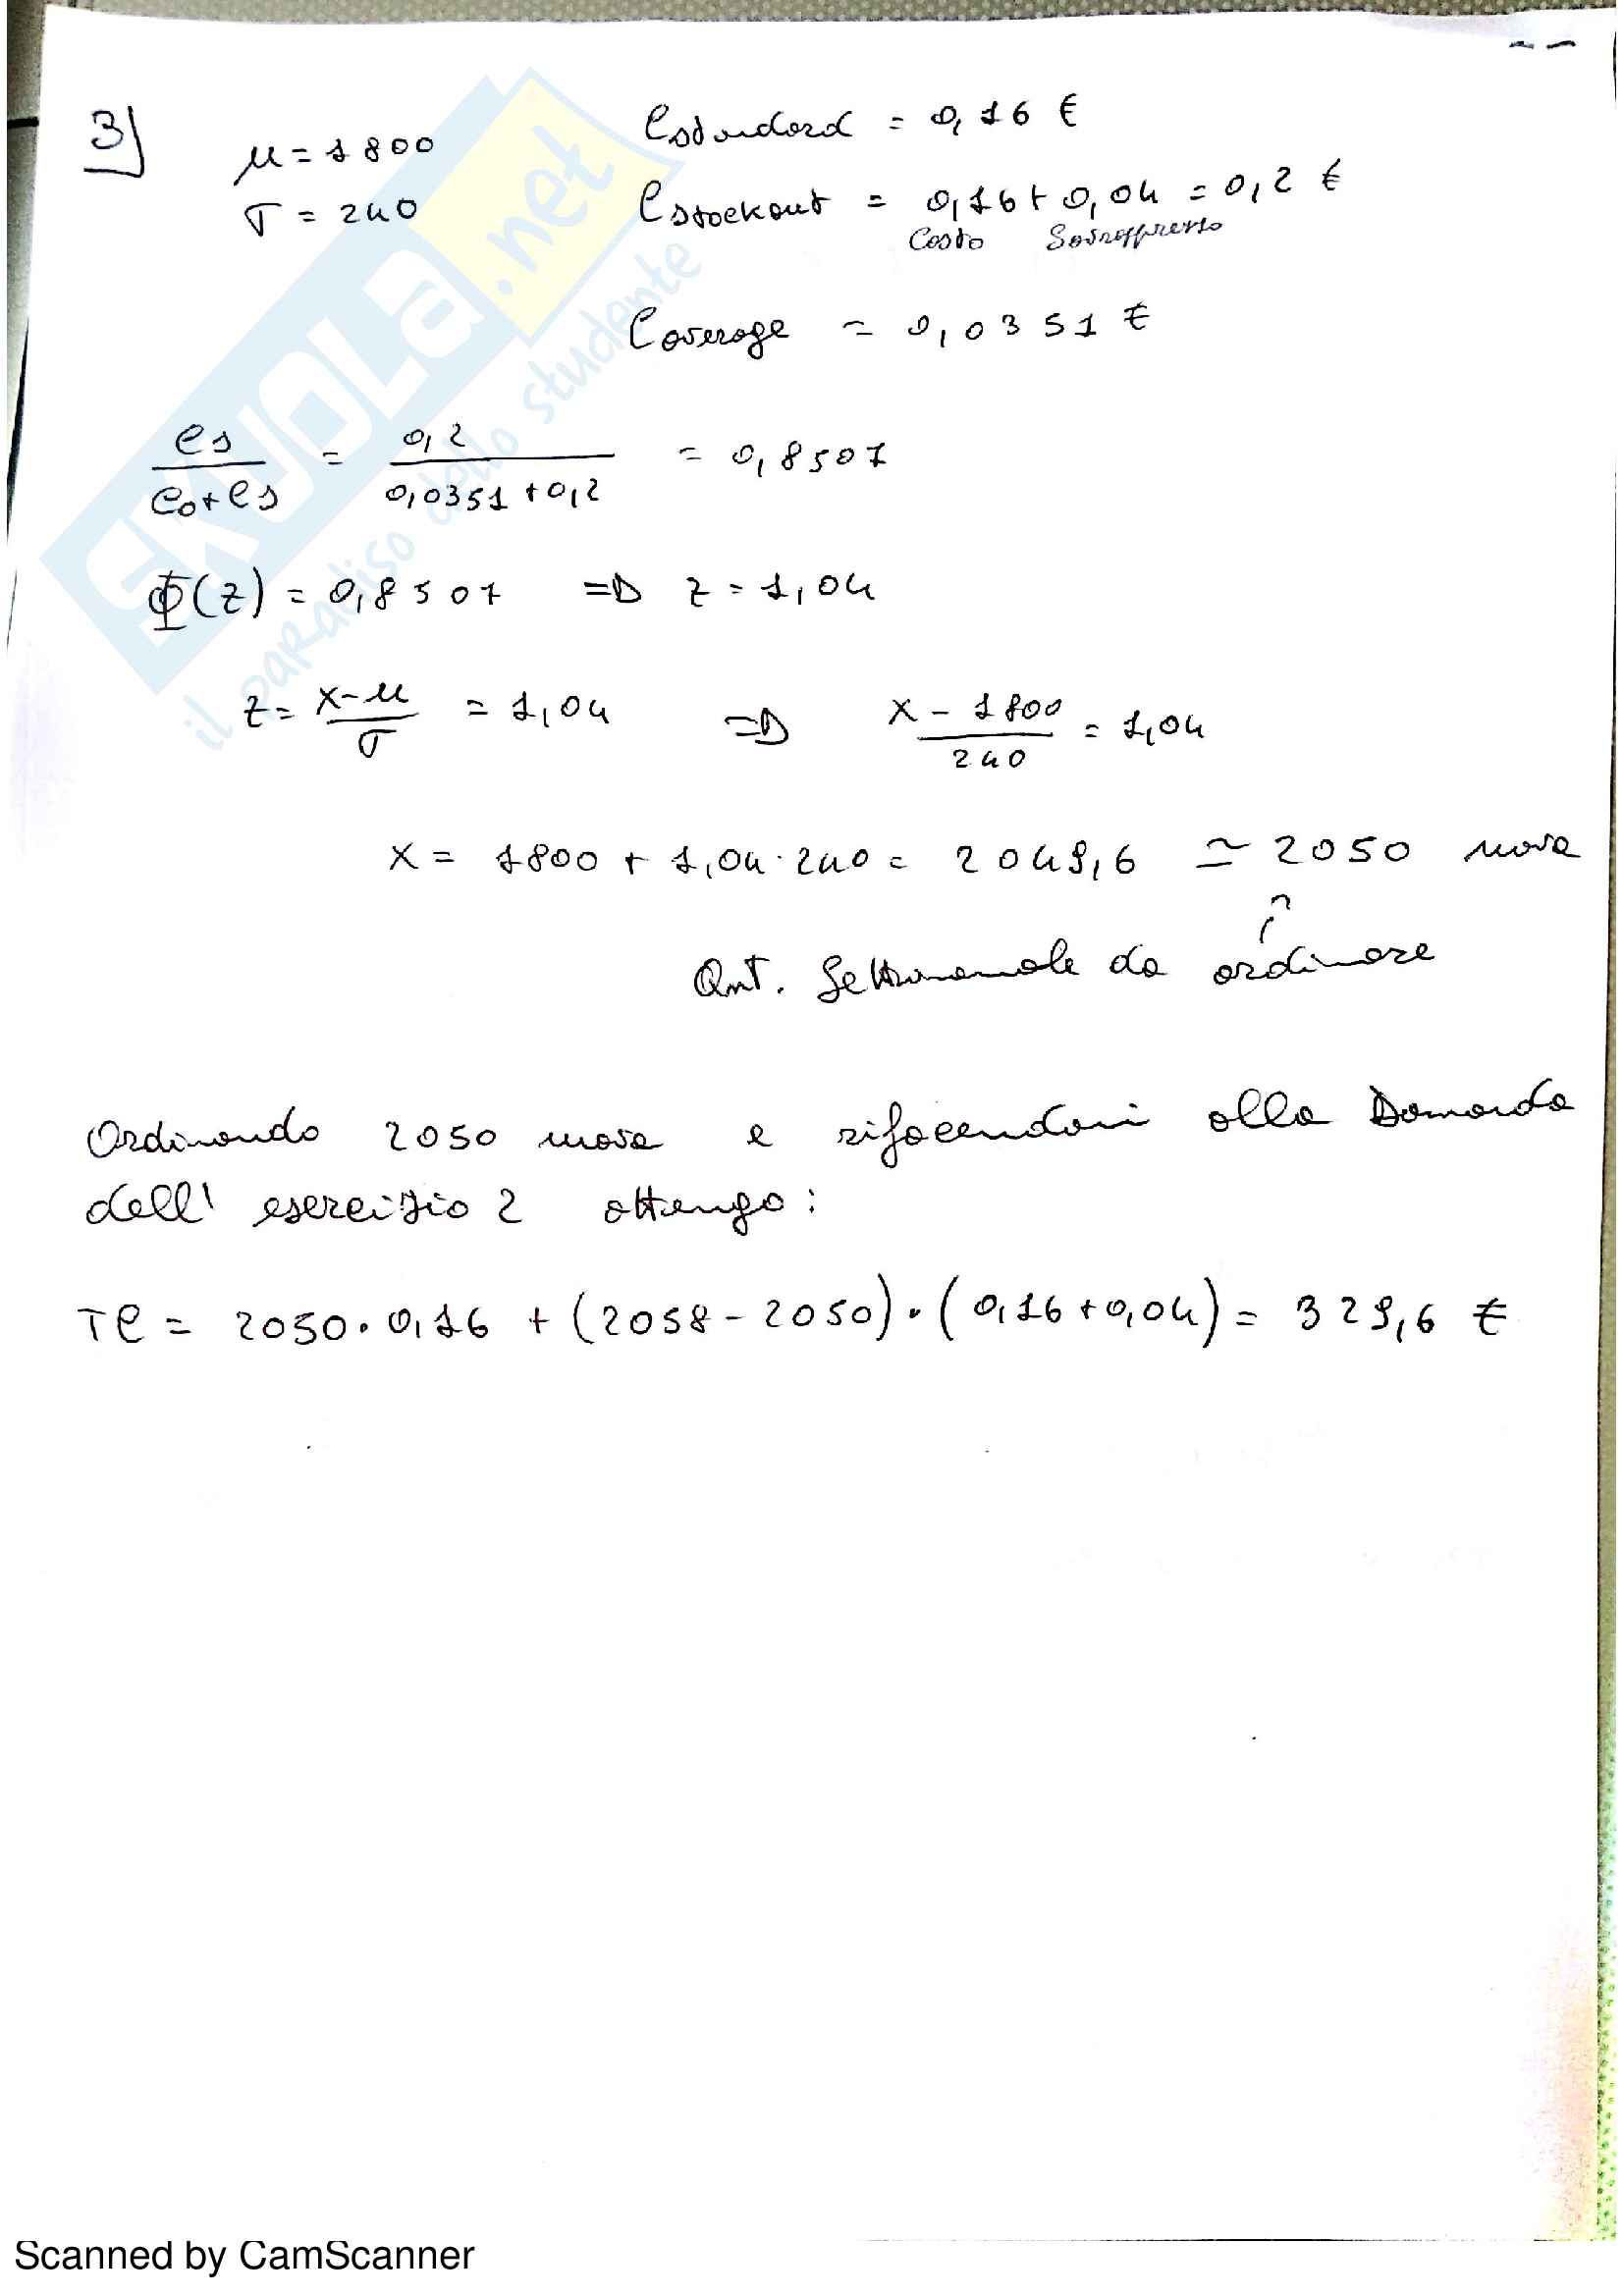 3)
μ = 1800
σ = 240
Cstandard = 0,16 €
Cstockout = 0,16 + 0,04 = 0,2 €
Costo Sovrapprezzo
Coverage = 0,0351 €
Cs / (Co + Cs) = 0,2 / (0,0351 + 0,2) = 0,8507
Φ(z) = 0,8507 => z = 1,04
z = (x - μ) / σ = 1,04 => (x - 1800) / 240 = 1,04
x = 1800 + 1,04 · 240 = 2049,6 ≃ 2050 uova
Qnt. Settimanale da ordinare
Ordinando 2050 uova e rifacendomi alla Domanda
dell' esercizio 2 ottengo:
TC = 2050 · 0,16 + (2058 - 2050) · (0,16 + 0,04) = 329,6 €
SKUOLA.net
il paradiso dello studente
Scanned by CamScanner